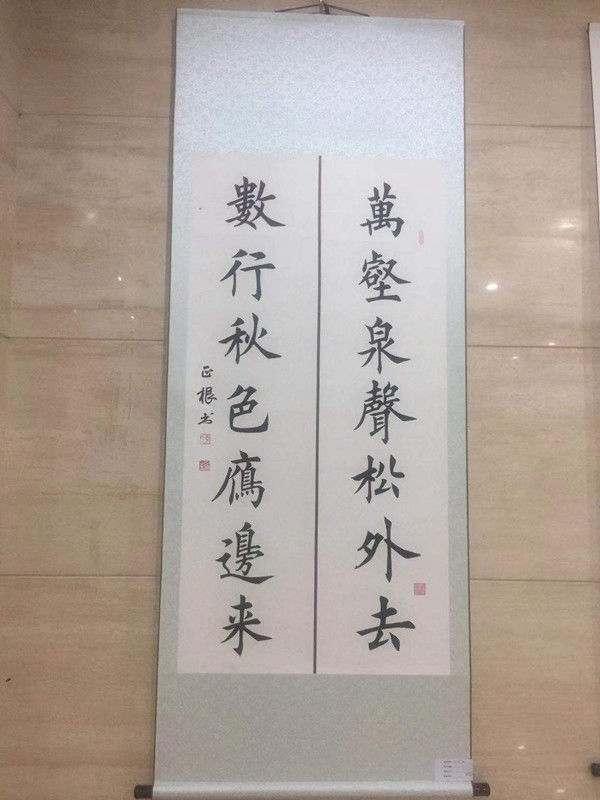 萬壑泉聲松外去
數行秋色鴈邊来
正根书